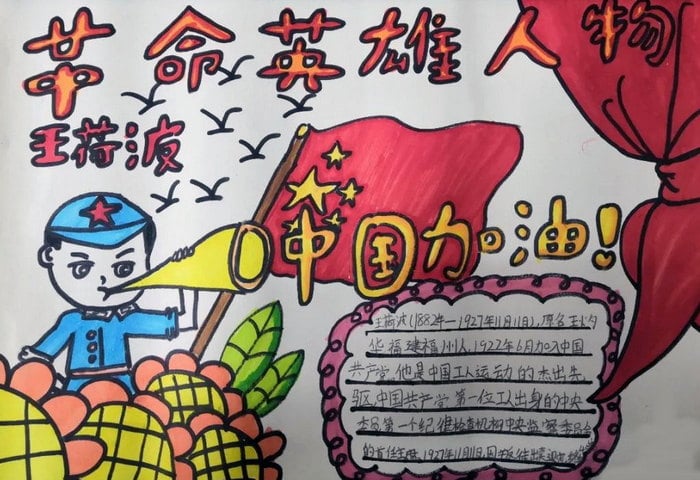 革命英雄人物
王荷波
中国加油!
王荷波(1882年—1927年11月11日),原名王灼
华,福建福州人,1922年6月加入中国
共产党,他是中国工人运动的杰出先
驱,中国共产党第一位工人出身的中央
委员,第一个纪律检查机构中央监察委员会
的首任主席,1927年11月11日,因叛徒出卖